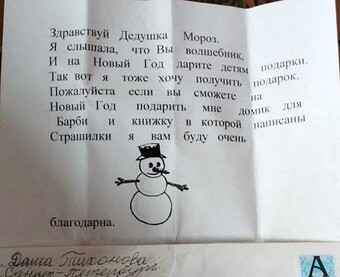 Здравствуй Дедушка Мороз.
Я слышала, что Вы волшебник,
И на Новый Год дарите детям подарки.
Так вот я тоже хочу получить подарок.
Пожалуйста если вы сможете на
Новый Год подарить мне домик для
Барби и книжку в которой написаны
Страшилки я вам буду очень
благодарна.
Даша Тихонова
Санкт-Петербург
А